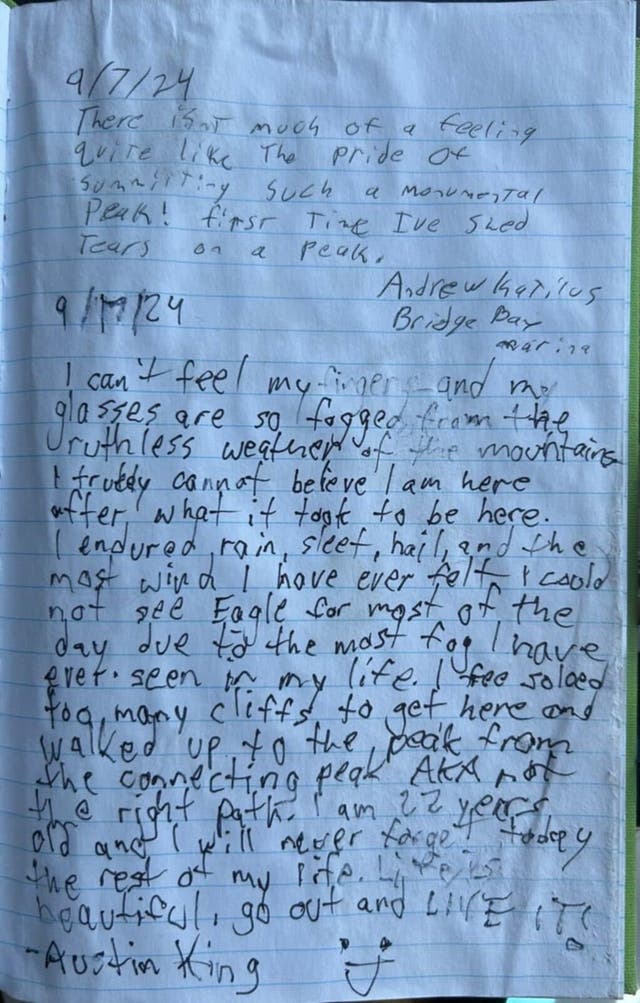 9/7/24
There isnt much of a feeling
quite like the pride of
summitting such a monumental
Peak! first Time I've shed
Tears on a peak.
Andrew
Bridge Bay
marina
9/17/24
I can't feel my fingers and my
glasses are so fogged from the
ruthless weather of the mountains
I truely cannot believe I am here
after what it took to be here.
I endured rain, sleet, hail, and the
most wind I have ever felt. I could
not see Eagle for most of the
day due to the most fog I have
ever seen in my life. I free soloed
too many cliffs to get here and
walked up to the peak from
the connecting peak AKA not
the right path. I am 22 years
old and I will never forget today
the rest of my life. Life is
beautiful, go out and LIVE IT!
-Austin King